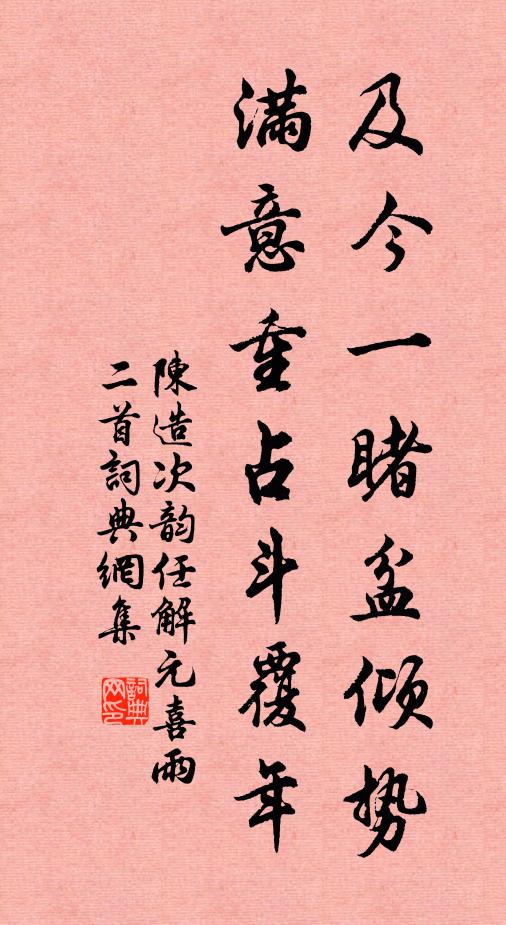 及今一睹盆倾势
满意重占斗覆年
陳造次韵任解元喜雨
二首詞典網集
詞典网印